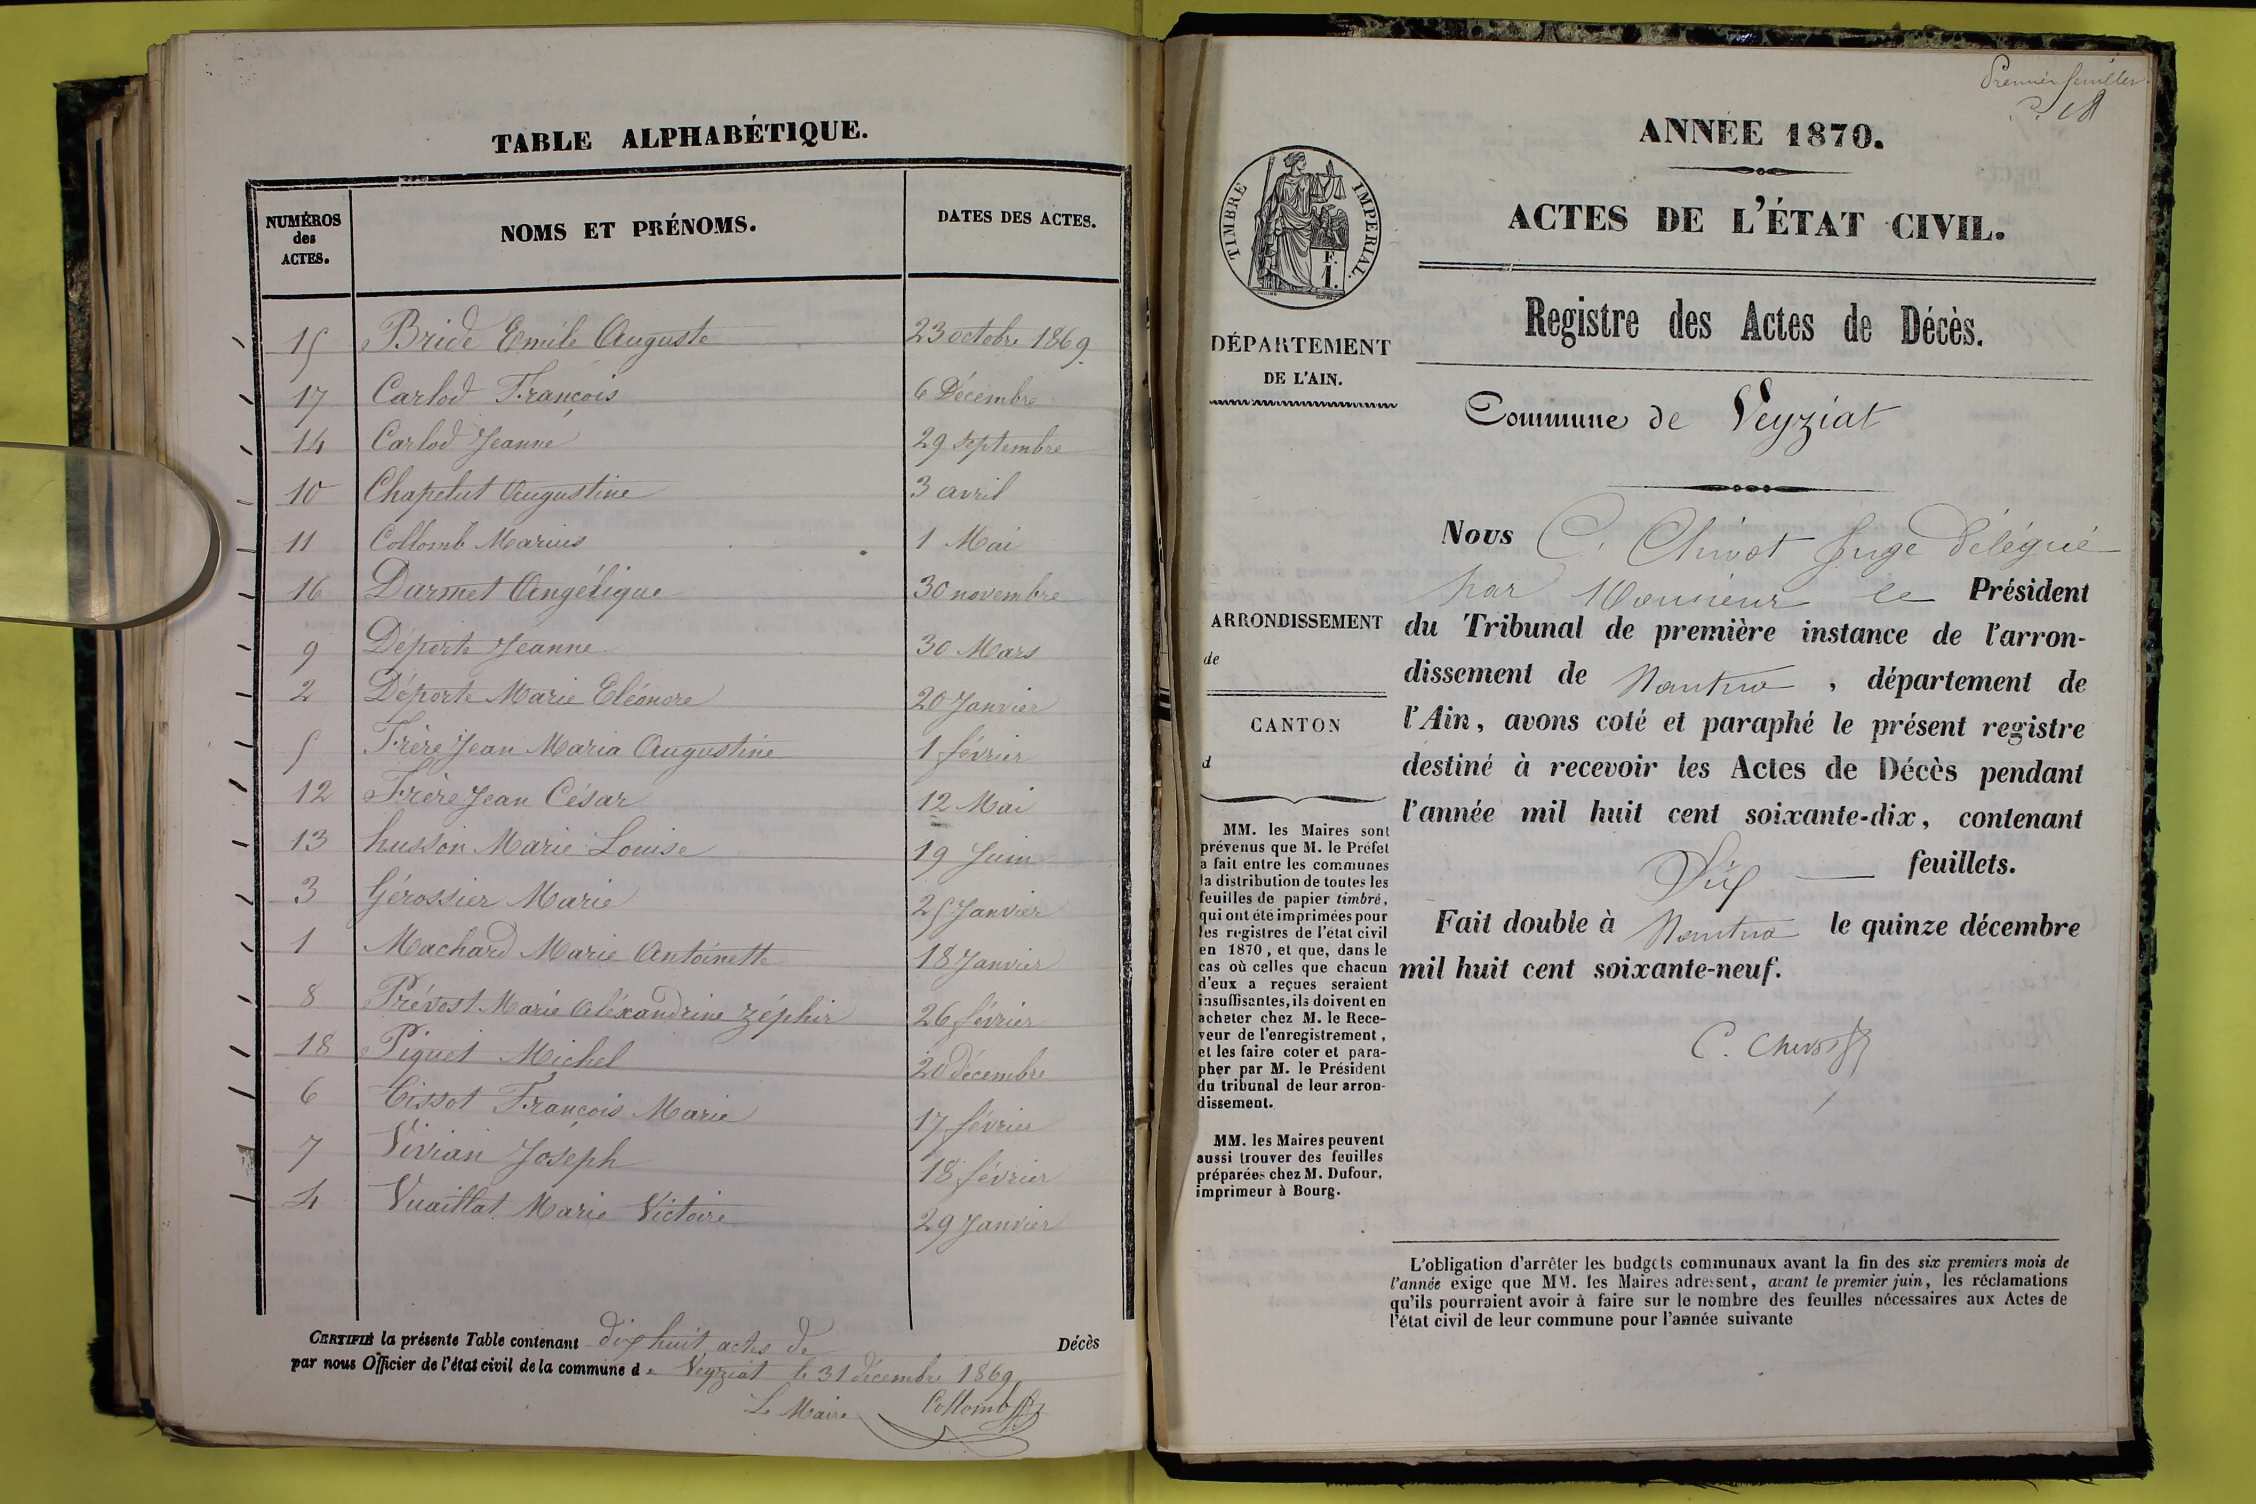 TABLE ALPHABÉTIQUE.
NUMÉROS des ACTES. NOMS ET PRÉNOMS. DATES DES ACTES.
15 Bride Emile Auguste 23 octobre 1869.
17 Carlod François 6 Décembre
14 Carlod Jeanne 29 septembre
10 Chapelut Augustine 3 avril
11 Collomb Marius 1 Mai
16 Darmet Angélique 30 novembre
9 Déporte Jeanne 30 Mars
2 Déporte Marie Eléonore 20 Janvier
5 Frère Jean Maria Augustine 1 février
12 Frère Jean César 12 Mai
13 husson Marie Louise 19 Juin
3 Gérossier Marie 25 Janvier
1 Machard Marie Antoinette 18 Janvier
8 Prévost Marie Aléxandrine zéphir 26 février
18 Piquet Michel 20 décembre
6 Tissot François Marie 17 février
7 Vivian Joseph 18 février
4 Vuaillat Marie Victoire 29 Janvier
CERTIFIÉ la présente Table contenant dix huit actes de Décès
par nous Officier de l'état civil de la commune de Veyziat le 31 décembre 1869
Le Maire Collomb
Premier feuillet
ANNÉE 1870.
ACTES DE L'ÉTAT CIVIL.
TIMBRE IMPERIAL.
F.
1.
DÉPARTEMENT
DE L'AIN.
ARRONDISSEMENT
de
CANTON
d
MM. les Maires sont
prévenus que M. le Préfet
a fait entre les communes
la distribution de toutes les
feuilles de papier timbré,
qui ont été imprimées pour
les registres de l'état civil
en 1870, et que, dans le
cas où celles que chacun
d'eux a reçues seraient
insuffisantes, ils doivent en
acheter chez M. le Rece-
veur de l'enregistrement,
et les faire coter et para-
pher par M. le Président
du tribunal de leur arron-
dissement.
MM. les Maires peuvent
aussi trouver des feuilles
préparées chez M. Dufour,
imprimeur à Bourg.
Registre des Actes de Décès.
Commune de Veyziat
Nous C. Chivot Juge délégué
par Monsieur le Président
du Tribunal de première instance de l'arron-
dissement de Nantua, département de
l'Ain, avons coté et paraphé le présent registre
destiné à recevoir les Actes de Décès pendant
l'année mil huit cent soixante-dix, contenant
Dix feuillets.
Fait double à Nantua le quinze décembre
mil huit cent soixante-neuf.
C. Chivot
L'obligation d'arrêter les budgets communaux avant la fin des six premiers mois de
l'année exige que MM. les Maires adressent, avant le premier juin, les réclamations
qu'ils pourraient avoir à faire sur le nombre des feuilles nécessaires aux Actes de
l'état civil de leur commune pour l'année suivante